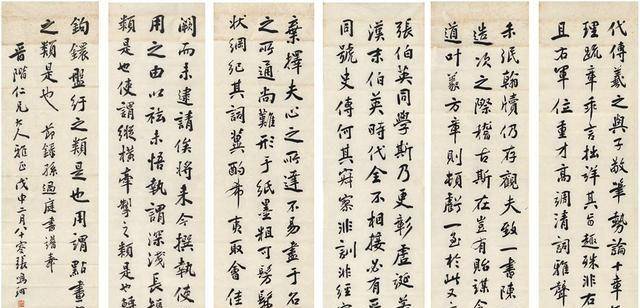 代傳羲之與子敬筆勢論十章文
理疏意乖言拙詳其旨趣殊非右
且右軍位重才高調清詞雅聲
未泯翰牘仍存觀夫致一書陳
造次之際稽古斯在豈有貽謀令
道叶義方章則頓虧一至於此又
張伯英同學斯乃更彰虛誕
漢末伯英時代全不相接必有
同號史傳何其寂寥非訓非經
棄擇夫心之所達不易盡于名
之所通尚難形于紙墨粗可髣髴
狀綱紀其詞冀酌希夷取會佳
闕而未逮請俟將來今撰執使
用之由以祛未悟執謂深淺長短
類是也使謂縱橫牽掣之類是也轉
鉤鐶盤紆之類是也用謂點畫
之類是也 節錄孫過庭書譜奉
晉階仁兄大人雅正戊申二月八十叟張鳴珂